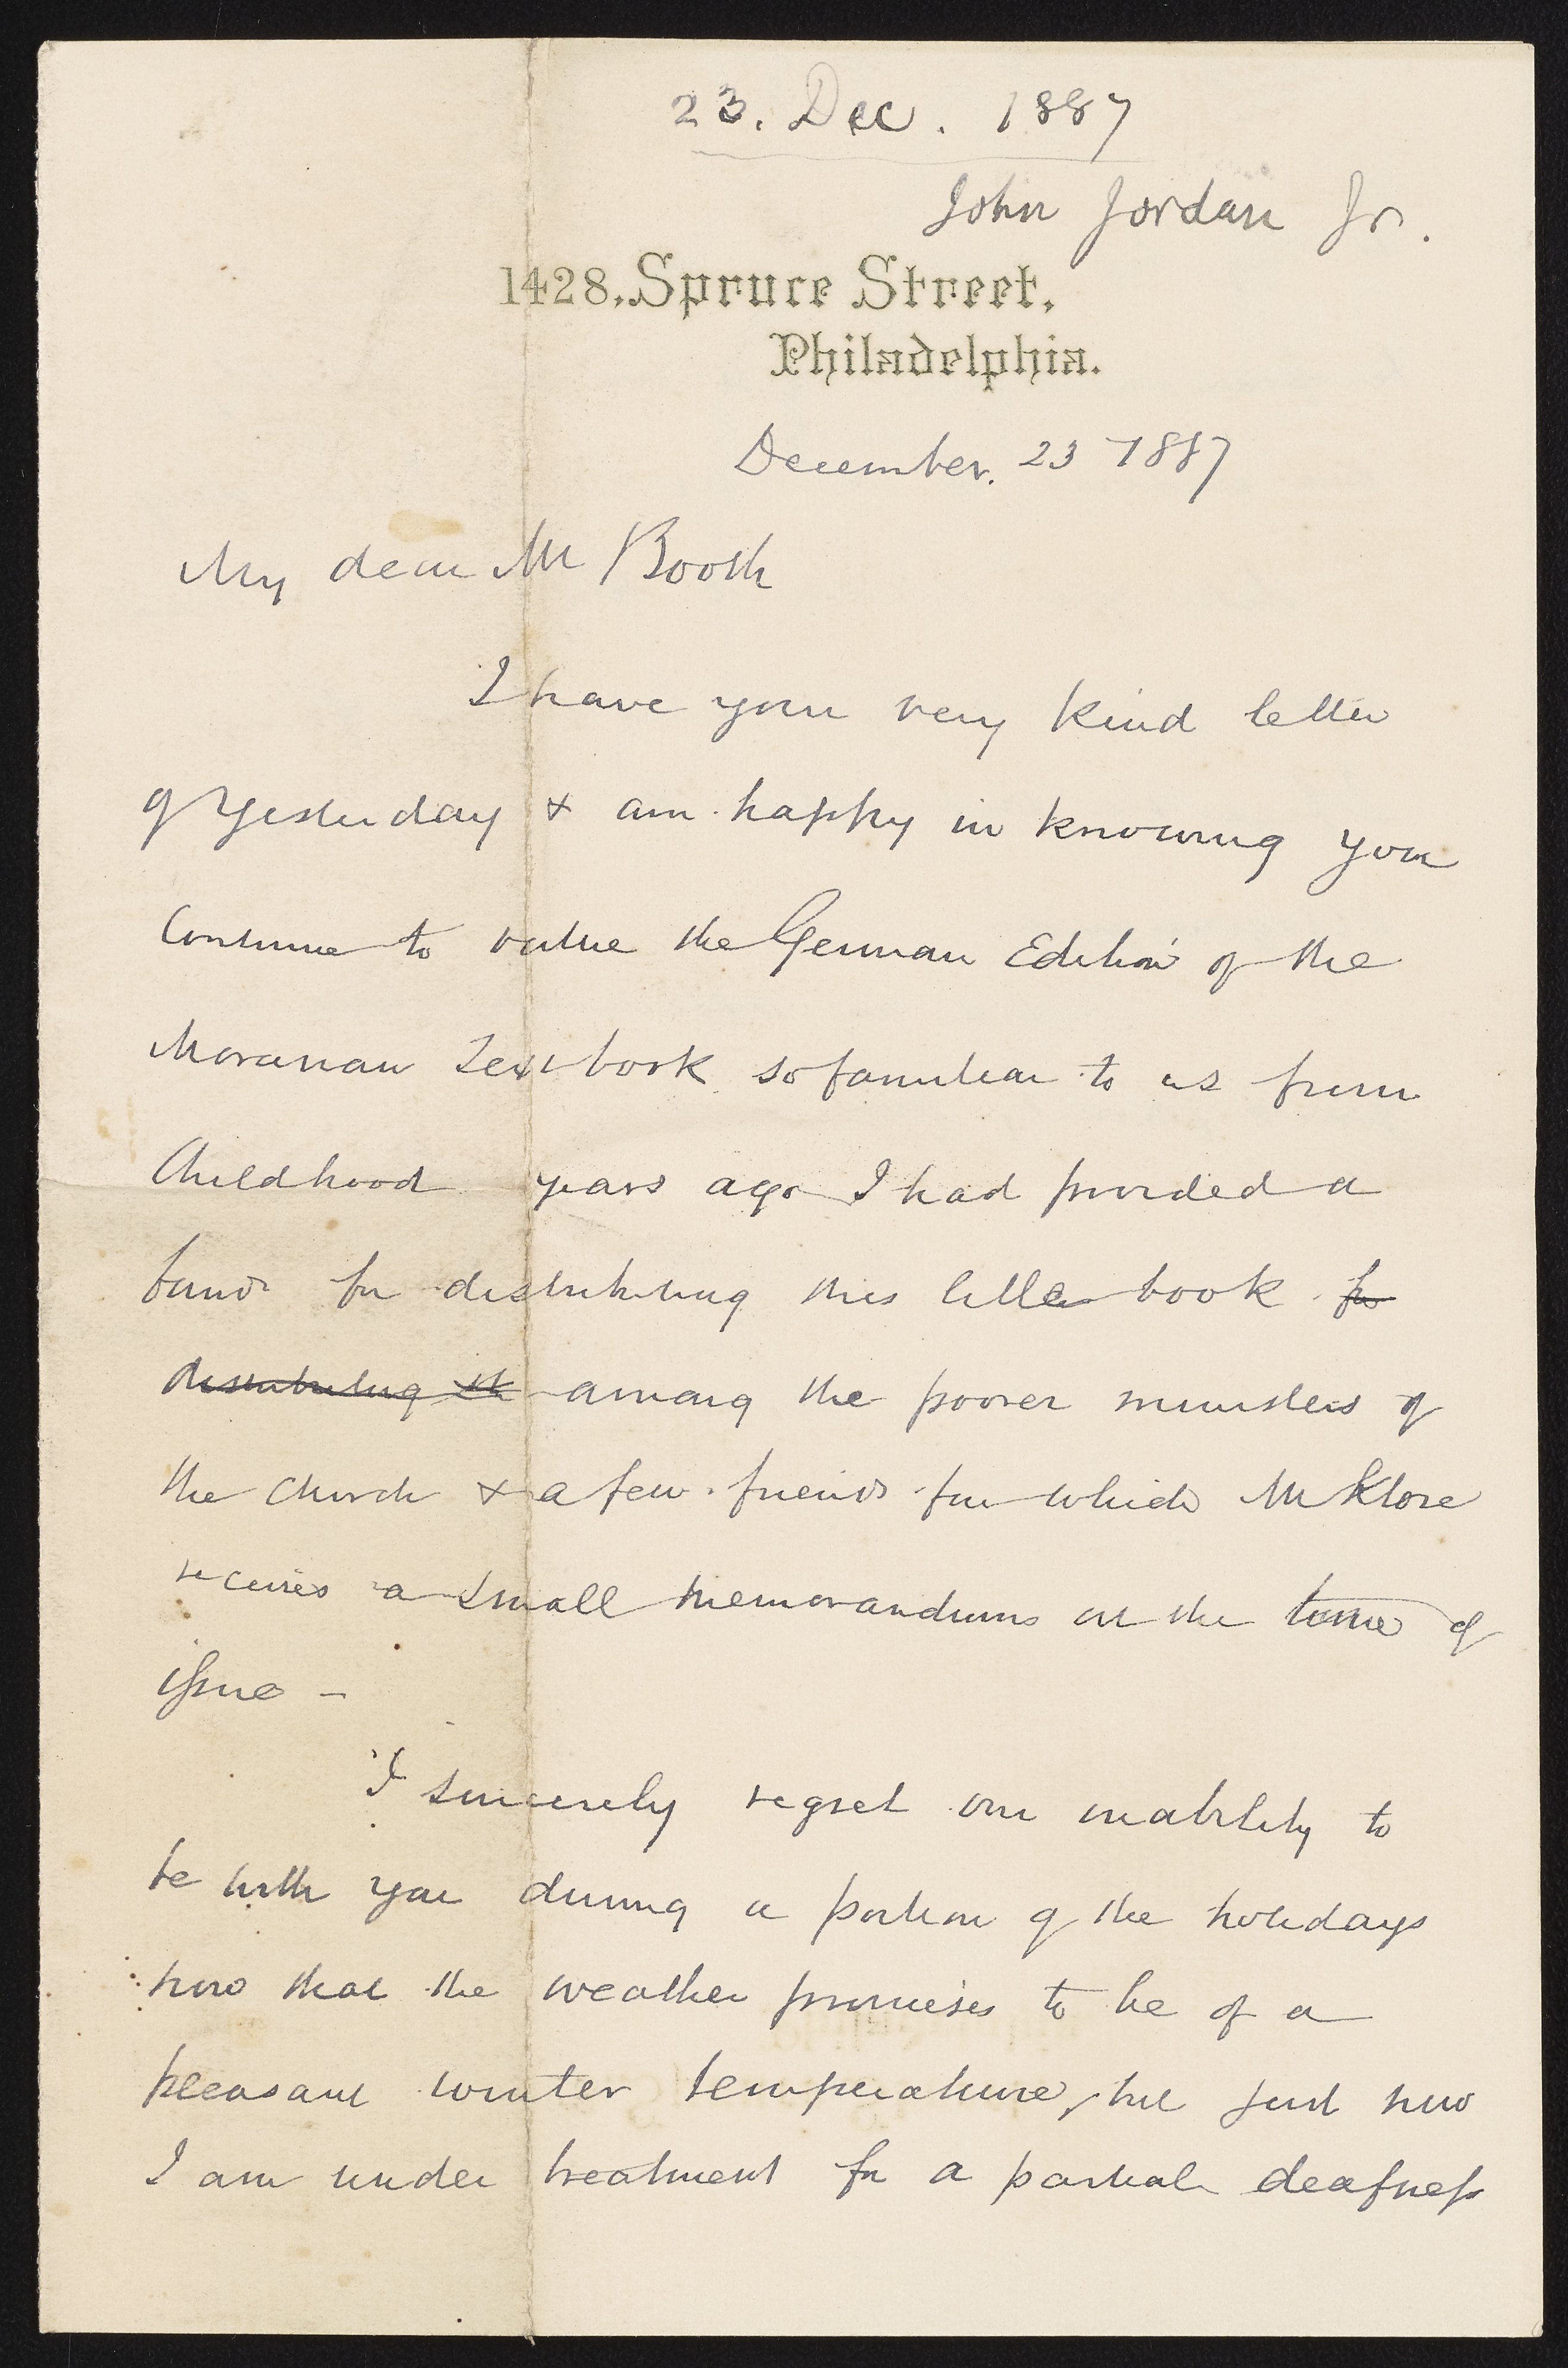 23. Dec. 1887
John Jordan Jr.
1428. Spruce Street.
Philadelphia.
December. 23 1887
My dear Mr Booth
I have your very kind letter
of yesterday & am happy in knowing you
Continue to value the German Edition of the
Moravian Text book so familiar to us from
Childhood years ago I had provided a
fund for distributing this little book for
distributing it among the poorer ministers of
the Church & a few friends for which Mr Klose
receives a small memorandum at the time of
issue –
I sincerely regret our inability to
be with you during a portion of the holidays
now that the weather promises to be of a
pleasant winter temperature, but just now
I am under treatment for a partial deafness